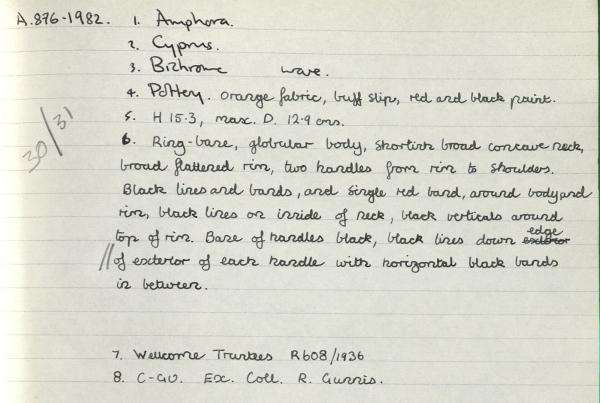 A.876-1982. 1. Amphora.
2. Cyprus.
3. Bichrome ware.
4. Pottery. Orange fabric, buff slip, red and black paint.
5. H 15.3, max. D. 12.9 cms.
30/31
6. Ring-base, globular body, shortish broad concave neck,
broad flattened rim, two handles from rim to shoulders.
Black lines and bands, and single red band, around body and
rim, black lines on inside of neck, black verticals around
top of rim. Base of handles black, black lines down edge
// of exterior of each handle with horizontal black bands
in between.
7. Wellcome Trustees R608/1936
8. C-GU. Ex. Coll. R. Gunnis.